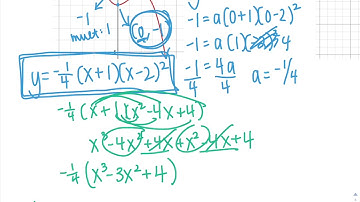 -1
mult: 1
(0, -1)
-1 = a(0+1)(0-2)²
-1 = a(1) 4
-1/4 = 4a/4    a = -1/4
y = -1/4 (x+1)(x-2)²
-1/4 (x+1)(x²-4x+4)
x³-4x²+4x+x²-4x+4
-1/4 (x³-3x²+4)